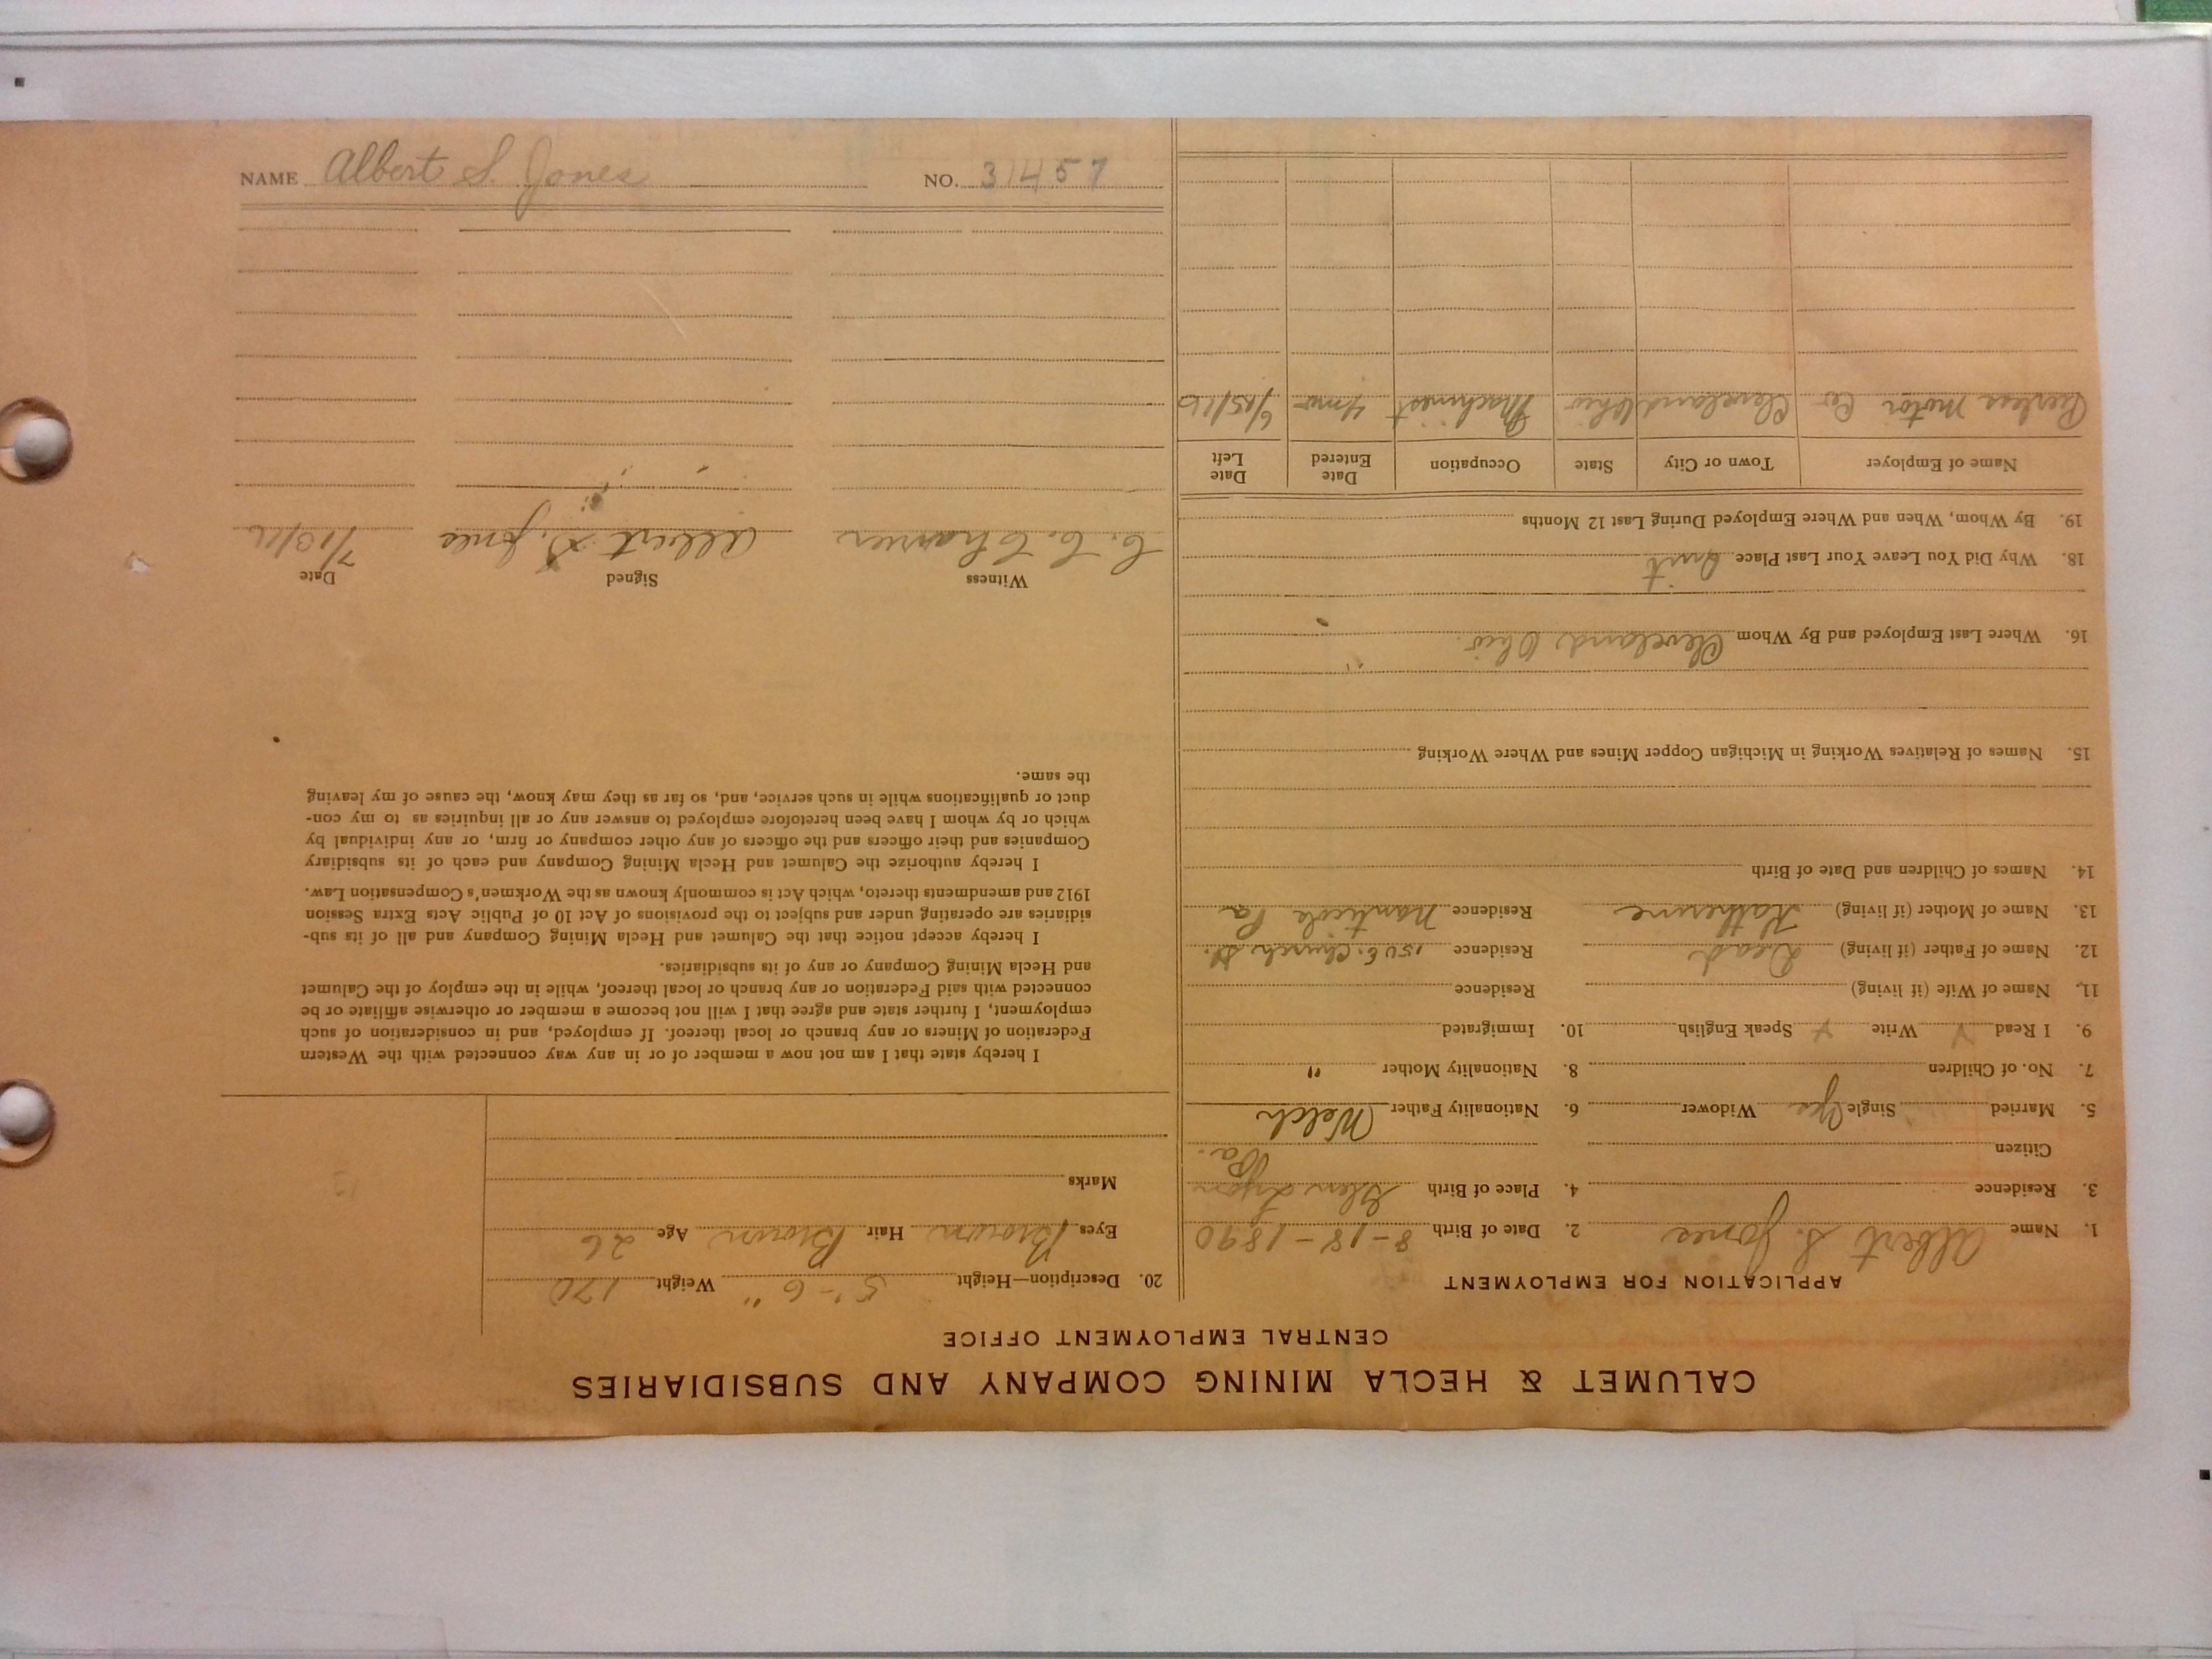 CALUMET & HECLA MINING COMPANY AND SUBSIDIARIES
CENTRAL EMPLOYMENT OFFICE
APPLICATION FOR EMPLOYMENT
1. Name Albert S. Jones 2. Date of Birth 8-18-1890
3. Residence 4. Place of Birth Glen Lyon
Pa.
Citizen
5. Married Single Yes Widower 6. Nationality Father Welch
7. No. of Children 8. Nationality Mother "
9. I Read Y Write Y Speak English 10. Immigrated
11. Name of Wife (if living) Residence
12. Name of Father (if living) Dead Residence 150 E. Church St.
13. Name of Mother (if living) Katherine Residence Nanticoke Pa
14. Names of Children and Date of Birth
15. Names of Relatives Working in Michigan Copper Mines and Where Working
16. Where Last Employed and By Whom Cleveland Ohio
18. Why Did You Leave Your Last Place Quit
19. By Whom, When and Where Employed During Last 12 Months
Name of Employer Town or City State Occupation Date Entered Date Left
Peerless Motor Co Cleveland Ohio Machinist 4 mo 6/25/16
20. Description—Height 5'-6" Weight 170
Eyes Brown Hair Brown Age 26
Marks
I hereby state that I am not now a member of or in any way connected with the Western
Federation of Miners or any branch or local thereof. If employed, and in consideration of such
employment, I further state and agree that I will not become a member or otherwise affiliate or be
connected with said Federation or any branch or local thereof, while in the employ of the Calumet
and Hecla Mining Company or any of its subsidiaries.
I hereby accept notice that the Calumet and Hecla Mining Company and all of its sub-
sidiaries are operating under and subject to the provisions of Act 10 of Public Acts Extra Session
1912 and amendments thereto, which Act is commonly known as the Workmen's Compensation Law.
I hereby authorize the Calumet and Hecla Mining Company and each of its subsidiary
Companies and their officers and the officers of any other company or firm, or any individual by
which or by whom I have been heretofore employed to answer any or all inquiries as to my con-
duct or qualifications while in such service, and, so far as they may know, the cause of my leaving
the same.
Witness Signed Date
C. C. Albert S. Jones 7/13/16
NAME Albert S. Jones NO. 31457